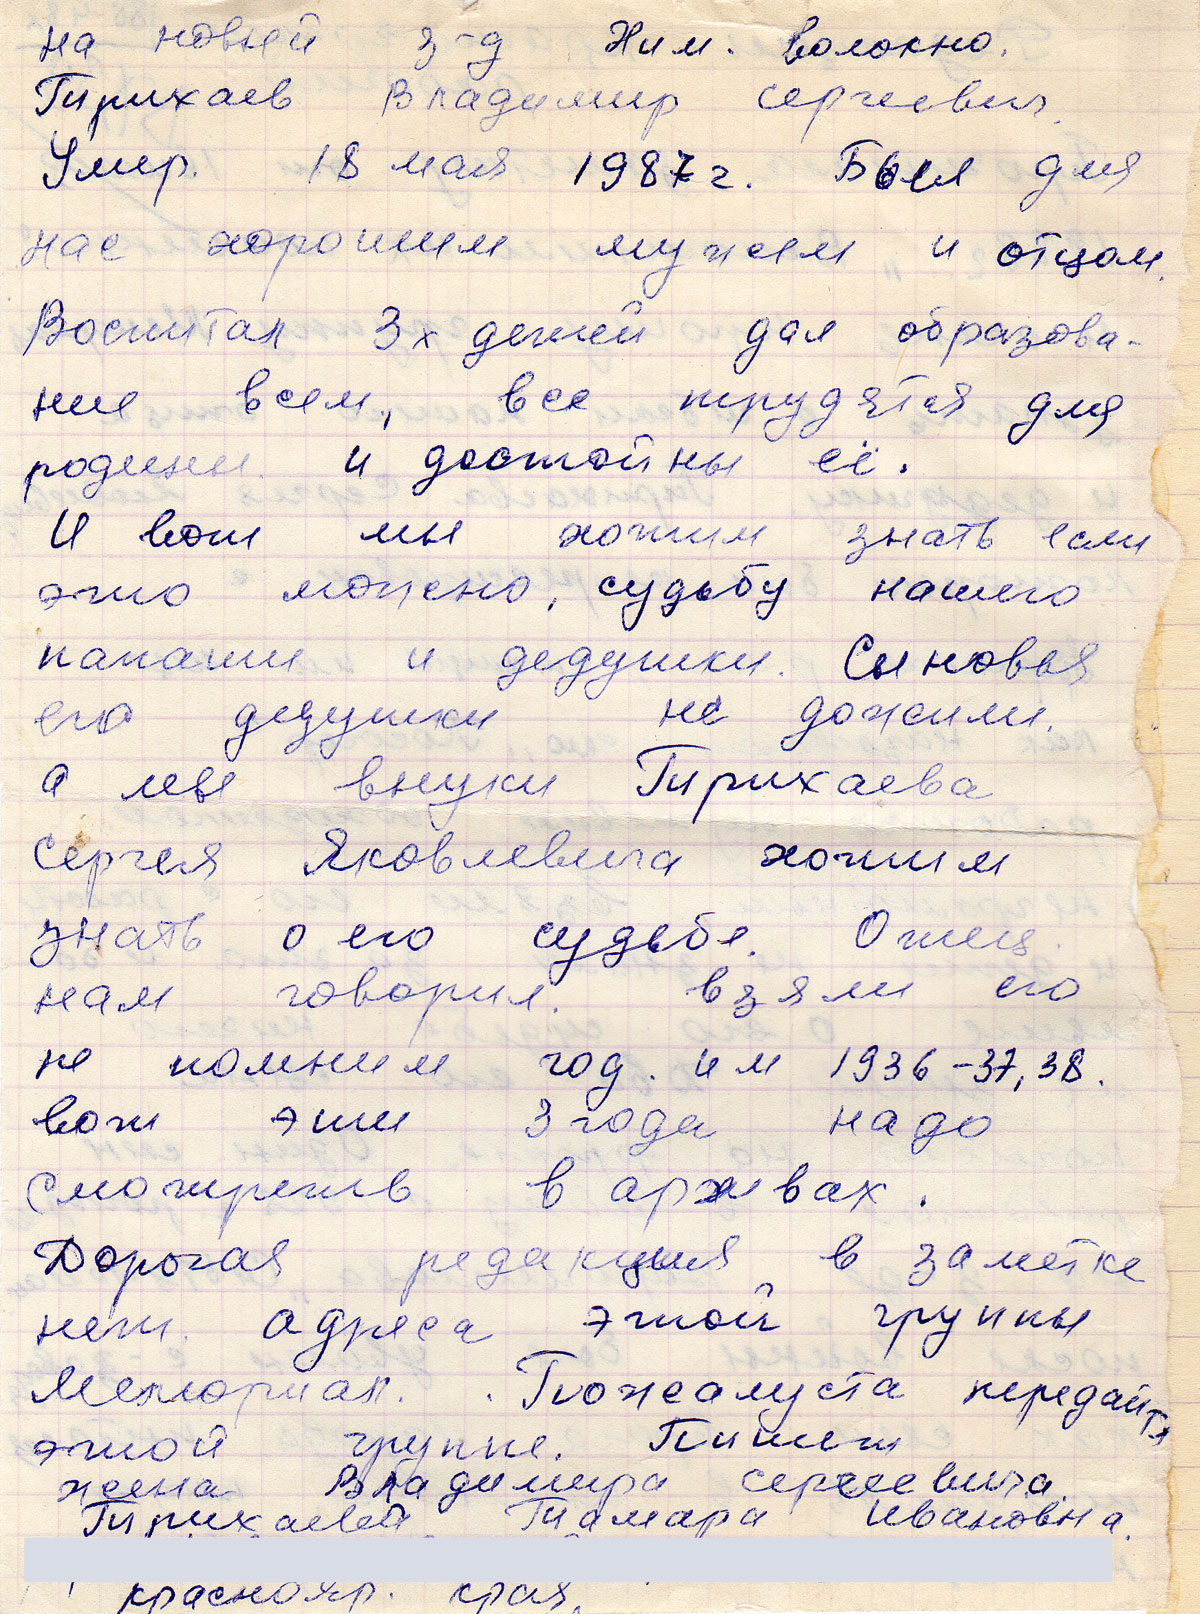 на новый з-д Хим. волокно.
Гирихаев Владимир Сергеевич.
Умер. 18 мая 1987 г. Был для
нас хорошим мужем и отцом.
Воспитал 3х детей дал образова-
ние всем, все трудятся для
родины и достойны её.
И вот мы хотим знать если
это можно, судьбу нашего
папаши и дедушки. Сыновья
его дедушки не дожили.
а мы внуки Гирихаева
Сергея Яковлевича хотим
знать о его судьбе. Отец.
нам говорил. взяли его
не помним год. им 1936-37,38.
вот эти 3 года надо
смотреть в архивах.
Дорогая редакция в заметке
нет. адреса этой группы
Мемориал. Пожалуста передайте
этой группе. Пишет
жена Владимира Сергеевича.
Гирихаева Тамара Ивановна.
краснояр. края.